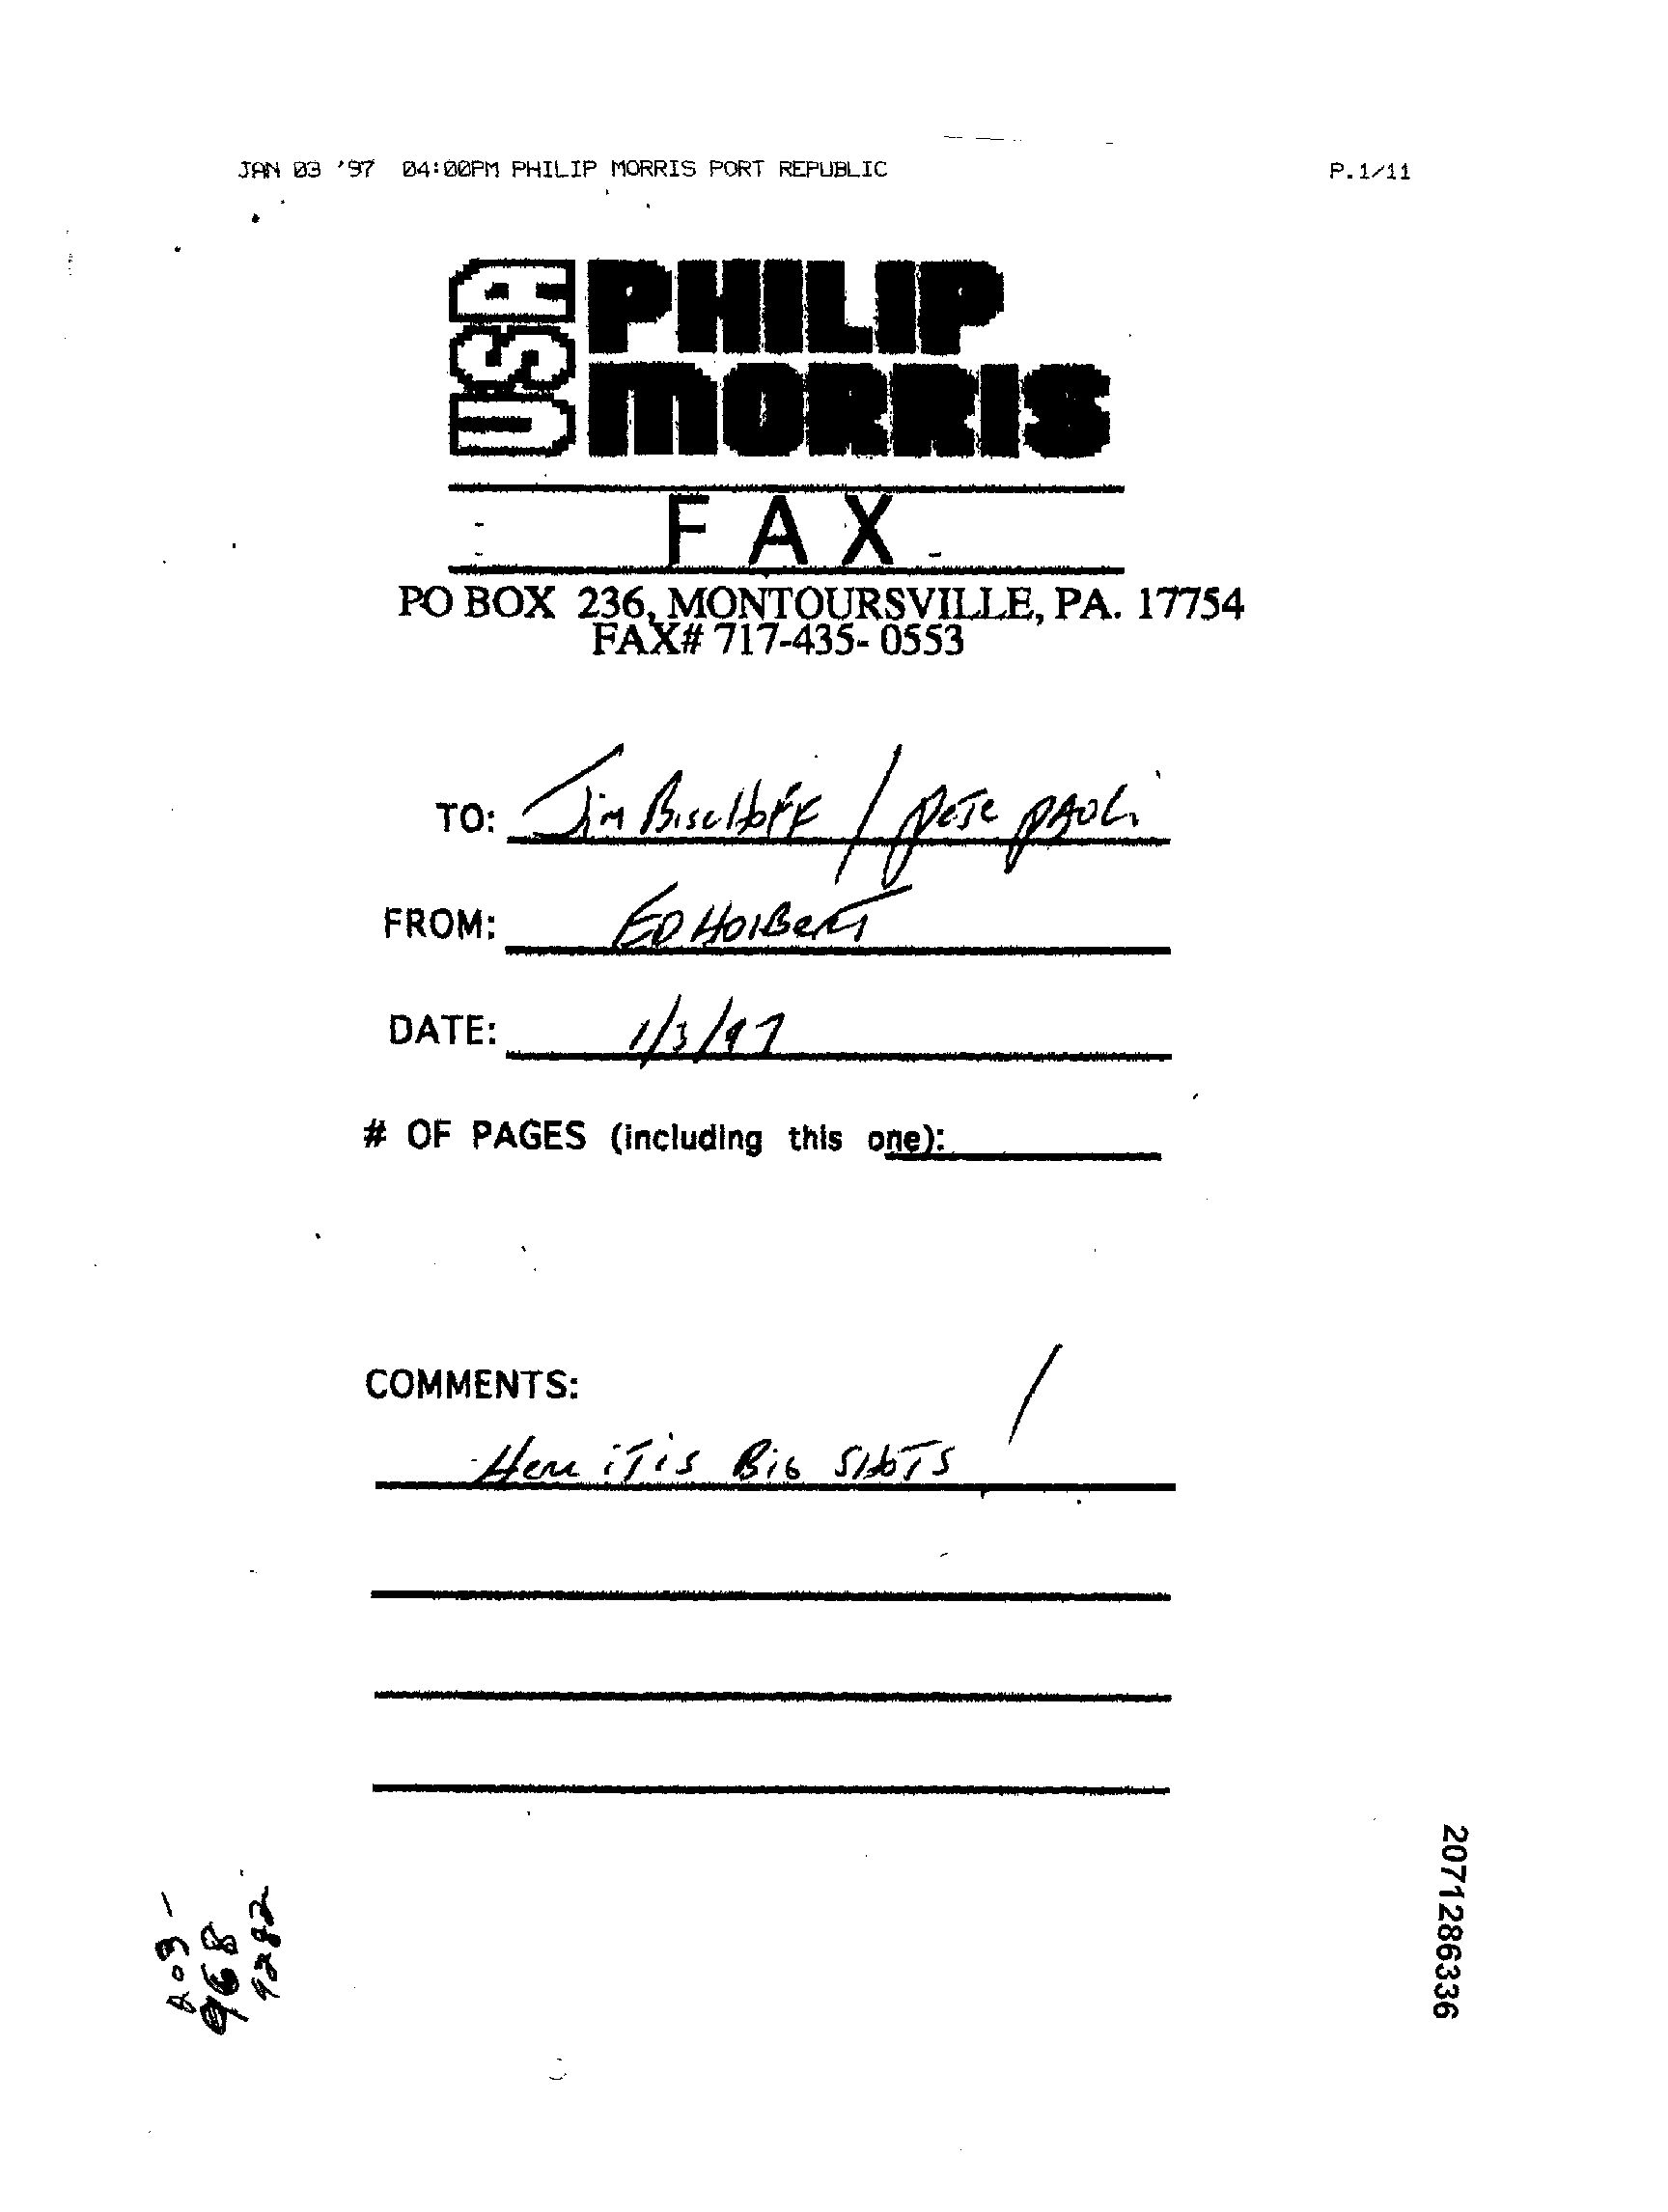 JAN 03 '97 04:00PM PHILIP MORRIS PORT REPUBLIC P.1/11
USA
PHILIP
MORRIS
FAX
PO BOX 236, MONTOURSVILLE, PA. 17754
FAX# 717-435-0553
TO: Jim Bischoff / Pete Paoli
FROM: ED HOLBERT
DATE: 1/3/97
# OF PAGES (including this one):
COMMENTS:
Here iT is Big SHOTS !
203-
968
9282
2071286336